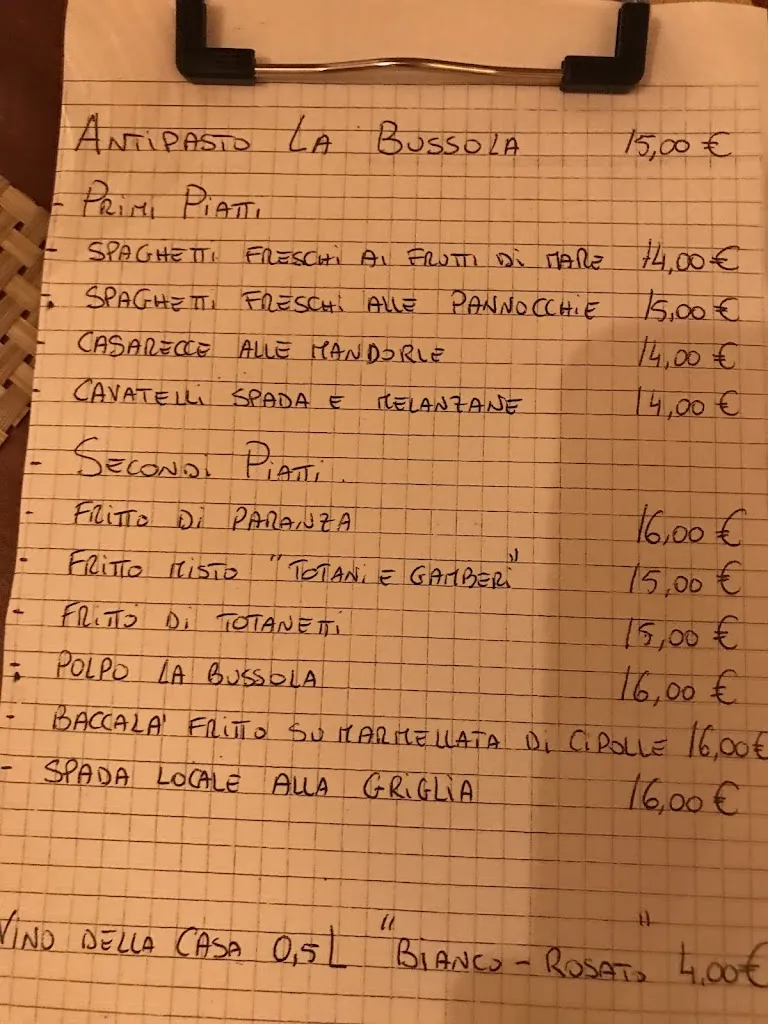 ANTIPASTO LA BUSSOLA 15,00 €
- PRIMI PIATTI
- SPAGHETTI FRESCHI AI FRUTTI DI MARE 14,00 €
- SPAGHETTI FRESCHI ALLE PANNOCCHIE 15,00 €
- CASARECCE ALLE MANDORLE 14,00 €
- CAVATELLI SPADA E MELANZANE 14,00 €
- SECONDI PIATTI.
- FRITTO DI PARANZA 16,00 €
- FRITTO MISTO "TOTANI E GAMBERI" 15,00 €
- FRITTO DI TOTANETTI 15,00 €
- POLPO LA BUSSOLA 16,00 €
- BACCALA' FRITTO SU MARMELLATA DI CIPOLLE 16,00 €
- SPADA LOCALE ALLA GRIGLIA 16,00 €
VINO DELLA CASA 0,5 L "BIANCO - ROSATO" 4,00 €